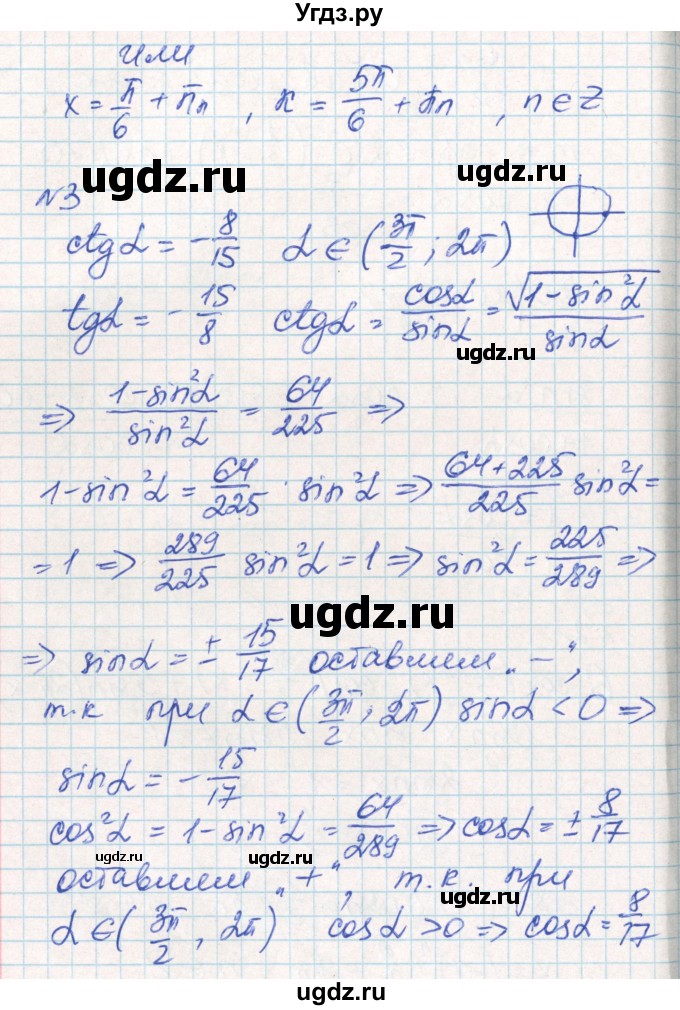 Угдз.ру
или
x = π/6 + πn , x = 5π/6 + πn , n ∈ Z
ugdz.ru
№3
ctgα = -8/15 α ∈ (3π/2 ; 2π)
tgα = -15/8 ctgα = cosα/sinα = √(1-sin²α)/sinα
ugdz.ru
=> (1-sin²α)/sin²α = 64/225 =>
1-sin²α = 64/225 · sin²α => (64+225)/225 sin²α =
= 1 => 289/225 sin²α = 1 => sin²α = 225/289 =>
ugdz.ru
=> sinα = ± 15/17 оставляем „-“,
т.к при α ∈ (3π/2 ; 2π) sinα < 0 =>
sinα = -15/17
cos²α = 1-sin²α = 64/289 => cosα = ± 8/17
ugdz.ru ugdz.ru ugdz.ru
оставляем „+“, т.к. при
α ∈ (3π/2 , 2π) cosα > 0 => cosα = 8/17
ugdz.ru